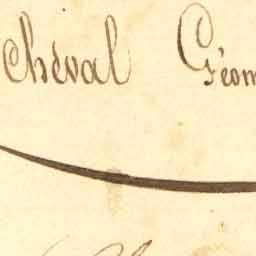 Cheval Géom